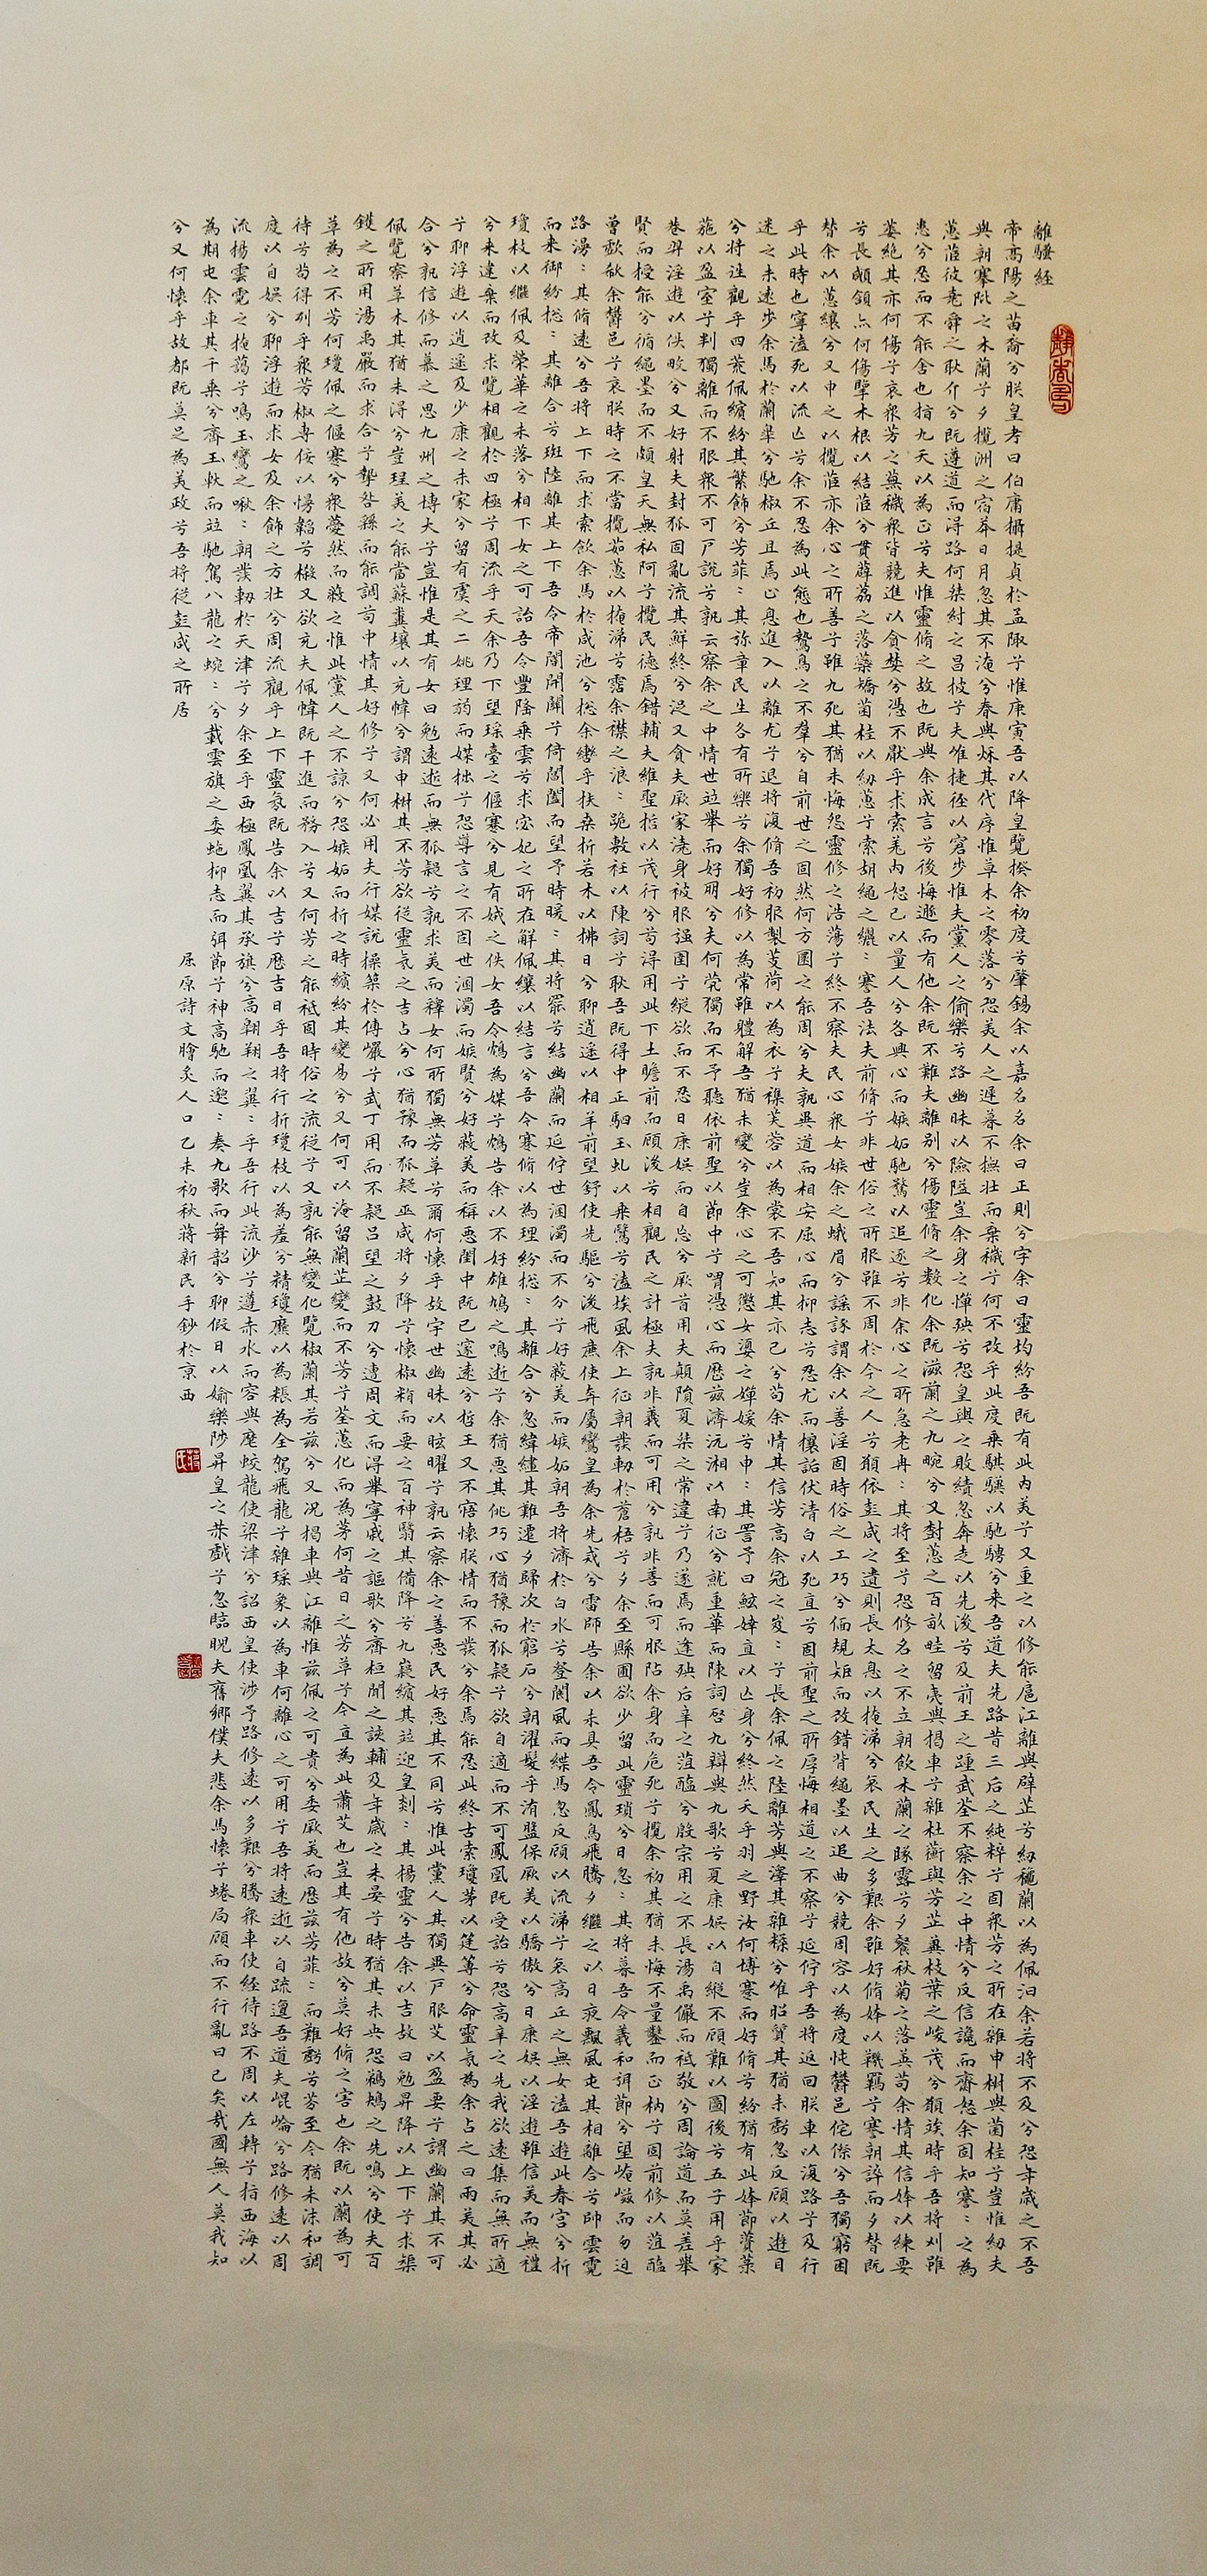 離騷經
帝高陽之苗裔兮朕皇考曰伯庸攝提貞於孟陬兮惟庚寅吾以降皇覽揆余初度兮肇錫余以嘉名名余曰正則兮字余曰靈均紛吾既有此內美兮又重之以修能扈江離與辟芷兮紉穐蘭以為佩汩余若將不及兮恐年歲之不吾
與朝搴阰之木蘭兮夕攬洲之宿莽日月忽其不淹兮春與秌其代序惟草木之零落兮恐美人之遲暮不撫壯而棄穢兮何不改乎此度乘騏驥以馳騁兮来吾道夫先路昔三后之純粹兮固衆芳之所在雜申樹與菌桂兮豈惟紉夫
蕙茝彼堯舜之耿介兮既遵道而得路何桀紂之昌披兮夫唯捷徑以窘步惟夫黨人之偷樂兮路幽昧以險隘豈余身之憚殃兮恐皇輿之敗績忽奔走以先後兮及前王之踵武荃不察余之中情兮反信讒而齌怒余固知謇〻之為
患兮忍而不能舍也指九天以為正兮夫惟靈脩之故也既與余成言兮後悔遯而有他余既不難夫離別兮傷靈脩之數化余既滋蘭之九畹兮又樹蕙之百畝畦留夷與揭車兮雜杜蘅與芳芷冀枝葉之峻茂兮願竢時乎吾將刈雖
萎絕其亦何傷兮哀衆芳之蕪穢衆皆競進以貪婪兮憑不厭乎求索羌內恕己以量人兮各興心而嫉妬馳騖以追逐兮非余心之所急老冉〻其將至兮恐修名之不立朝飲木蘭之墜露兮夕餐秋菊之落英苟余情其信姱以練要
兮長顑頷亦何傷擥木根以結茝兮貫薜荔之落蘂矯菌桂以紉蕙兮索胡繩之纚〻謇吾法夫前脩兮非世俗之所服雖不周於今之人兮願依彭咸之遺則長太息以掩涕兮哀民生之多艱余雖好脩姱以鞿羈兮謇朝誶而夕替既
替余以蕙纕兮又申之以攬茝亦余心之所善兮雖九死其猶未悔怨靈修之浩蕩兮終不察夫民心衆女嫉余之蛾眉兮謠諑謂余以善淫固時俗之工巧兮偭規矩而改錯背繩墨以追曲兮競周容以為度忳鬱邑侘傺兮吾獨窮困
乎此時也寧溘死以流亡兮余不忍為此態也鷙鳥之不羣兮自前世之固然何方圜之能周兮夫孰異道而相安屈心而抑志兮忍尤而攘詬伏清白以死直兮固前聖之所厚悔相道之不察兮延佇乎吾將返回朕車以復路兮及行
迷之未遠步余馬於蘭皋兮馳椒丘且焉止息進入以離尤兮退將復脩吾初服製芰荷以為衣兮襍芙蓉以為裳不吾知其亦已兮苟余情其信芳高余冠之岌〻兮長余佩之陸離芳與澤其雜糅兮唯昭質其猶未虧忽反顧以遊目
兮將往觀乎四荒佩繽紛其繁飾兮芳菲〻其弥章民生各有所樂兮余獨好修以為常雖體解吾猶未變兮豈余心之可懲女嬃之嬋媛兮申〻其詈予曰鯀婞直以亡身兮終然夭乎羽之野汝何博謇而好脩兮紛獨有此姱節薋菉
葹以盈室兮判獨離而不服衆不可戶說兮孰云察余之中情世並舉而好朋兮夫何煢獨而不予聽依前聖以節中兮喟憑心而歷茲濟沅湘以南征兮就重華而陳詞啓九辯與九歌兮夏康娛以自縱不顧難以圖後兮五子用乎家
巷羿淫遊以佚畋兮又好射夫封狐固亂流其鮮終兮浞又貪夫厥家澆身被服强圉兮縱欲而不忍日康娛而自忘兮厥首用夫顛隕夏桀之常違兮乃遂焉而逢殃后辛之菹醢兮殷宗用之不長湯禹儼而祗敬兮周論道而莫差舉
賢而授能兮循繩墨而不頗皇天無私阿兮攬民德焉錯輔夫維聖哲以茂行兮苟得用此下土瞻前而顧後兮相觀民之計極夫孰非義而可用兮孰非善而可服阽余身而危死兮攬余初其猶未悔不量鑿而正枘兮固前修以菹醢
曾歔欷余鬱邑兮哀朕時之不當攬茹蕙以掩涕兮霑余襟之浪〻跪敷衽以陳詞兮耿吾既得中正駟玉虬以乘鷖兮溘埃風余上征朝發軔於蒼梧兮夕余至縣圃欲少留此靈瑣兮日忽〻其將暮吾令羲和弭節兮望崦嵫而勿迫
路漫〻其脩遠兮吾將上下而求索飲余馬於咸池兮總余轡乎扶桑折若木以拂日兮聊逍遙以相羊前望舒使先驅兮後飛廉使奔屬鸞皇為余先戒兮雷師告余以未具吾令鳳鳥飛騰夕繼之以日夜飄風屯其相離合兮帥雲霓
而来御紛總〻其離合兮斑陸離其上下吾令帝閽開關兮倚閶闔而望予時曖〻其將罷兮結幽蘭而延佇世溷濁而不分兮好蔽美而嫉妬朝吾將濟於白水兮登閬風而緤馬忽反顧以流涕兮哀高丘之無女溘吾遊此春宮兮折
瓊枝以繼佩及榮華之未落兮相下女之可詒吾令豐隆乘雲兮求宓妃之所在解佩纕以結言兮吾令蹇脩以為理紛總〻其離合兮忽緯繣其難遷夕歸次於窮石兮朝濯髮乎洧盤保厥美以驕傲兮日康娛以淫遊雖信美而無禮
兮来違棄而改求覽相觀於四極兮周流乎天余乃下望瑤臺之偃蹇兮見有娀之佚女吾令鴆為媒兮鴆告余以不好雄鳩之鳴逝兮余猶惡其佻巧心猶豫而狐疑兮欲自適而不可鳳凰既受詒兮恐高辛之先我欲遠集而無所適
兮聊浮遊以逍遙及少康之未家兮留有虞之二姚理弱而媒拙兮恐導言之不固世溷濁而嫉賢兮好蔽美而稱惡閨中既已邃遠兮哲王又不寤懷朕情而不發兮余焉能忍此終古索瓊茅以筳篿兮命靈氛為余占之曰兩美其必
合兮孰信修而慕之思九州之博大兮豈惟是其有女曰勉遠逝而無狐疑兮孰求美而釋女何所獨無芳草兮爾何懷乎故宇世幽昧以眩曜兮孰云察余之善惡民好惡其不同兮惟此黨人其獨異戶服艾以盈要兮謂幽蘭其不可
佩覽察草木其猶未得兮豈珵美之能當蘇糞壤以充幃兮謂申樹其不芳欲從靈氛之吉占兮心猶豫而狐疑巫咸將夕降兮懷椒糈而要之百神翳其備降兮九嶷繽其並迎皇剡〻其揚靈兮告余以吉故曰勉昇降以上下兮求榘
鑊之所用湯禹嚴而求合兮摯咎繇而能調苟中情其好修兮又何必用夫行媒說操築於傅巖兮武丁用而不疑呂望之鼓刀兮遭周文而得舉寧戚之謳歌兮齊桓聞之該輔及年歲之未晏兮時猶其未央恐鵜鴂之先鳴兮使夫百
草為之不芳何瓊佩之偃蹇兮衆薆然而蔽之惟此黨人之不諒兮恐嫉妬而折之時繽紛其變易兮又何可以淹留蘭芷變而不芳兮荃蕙化而為茅何昔日之芳草兮今直為此蕭艾也豈其有他故兮莫好脩之害也余既以蘭為可
待兮苟得列乎衆芳椒專佞以慢韜兮樧又欲充夫佩幃既干進而務入兮又何芳之能祗固時俗之流從兮又孰能無變化覽椒蘭其若茲兮又況揭車與江離惟茲佩之可貴兮委厥美而歷茲芳菲〻而難虧兮芬至今猶未沬和調
度以自娛兮聊浮遊而求女及余飾之方壯兮周流觀乎上下靈氛既告余以吉兮歷吉日乎吾將行折瓊枝以為羞兮精瓊爢以為粻為余駕飛龍兮雜瑤象以為車何離心之可用兮吾將遠逝以自疏邅吾道夫崐崙兮路修遠以周
流揚雲霓之掩藹兮鳴玉鸞之啾〻朝發軔於天津兮夕余至乎西極鳳凰翼其承旗兮高翱翔之翼〻乎吾行此流沙兮遵赤水而容與麾蛟龍使梁津兮詔西皇使涉予路修遠以多艱兮騰衆車使徑待路不周以左轉兮指西海以
為期屯余車其千乘兮齊玉軑而並馳駕八龍之蜿〻兮載雲旗之委蛇抑志而弭節兮神高馳而邈〻奏九歌而舞韶兮聊假日以媮樂陟昇皇之赫戲兮忽臨睨夫舊鄉僕夫悲余馬懷兮蜷局顧而不行亂曰已矣哉國無人莫我知
兮又何懷乎故都既莫足為美政兮吾將從彭咸之所居
屈原詩文膾炙人口乙未初秋蔣新民手鈔於京西